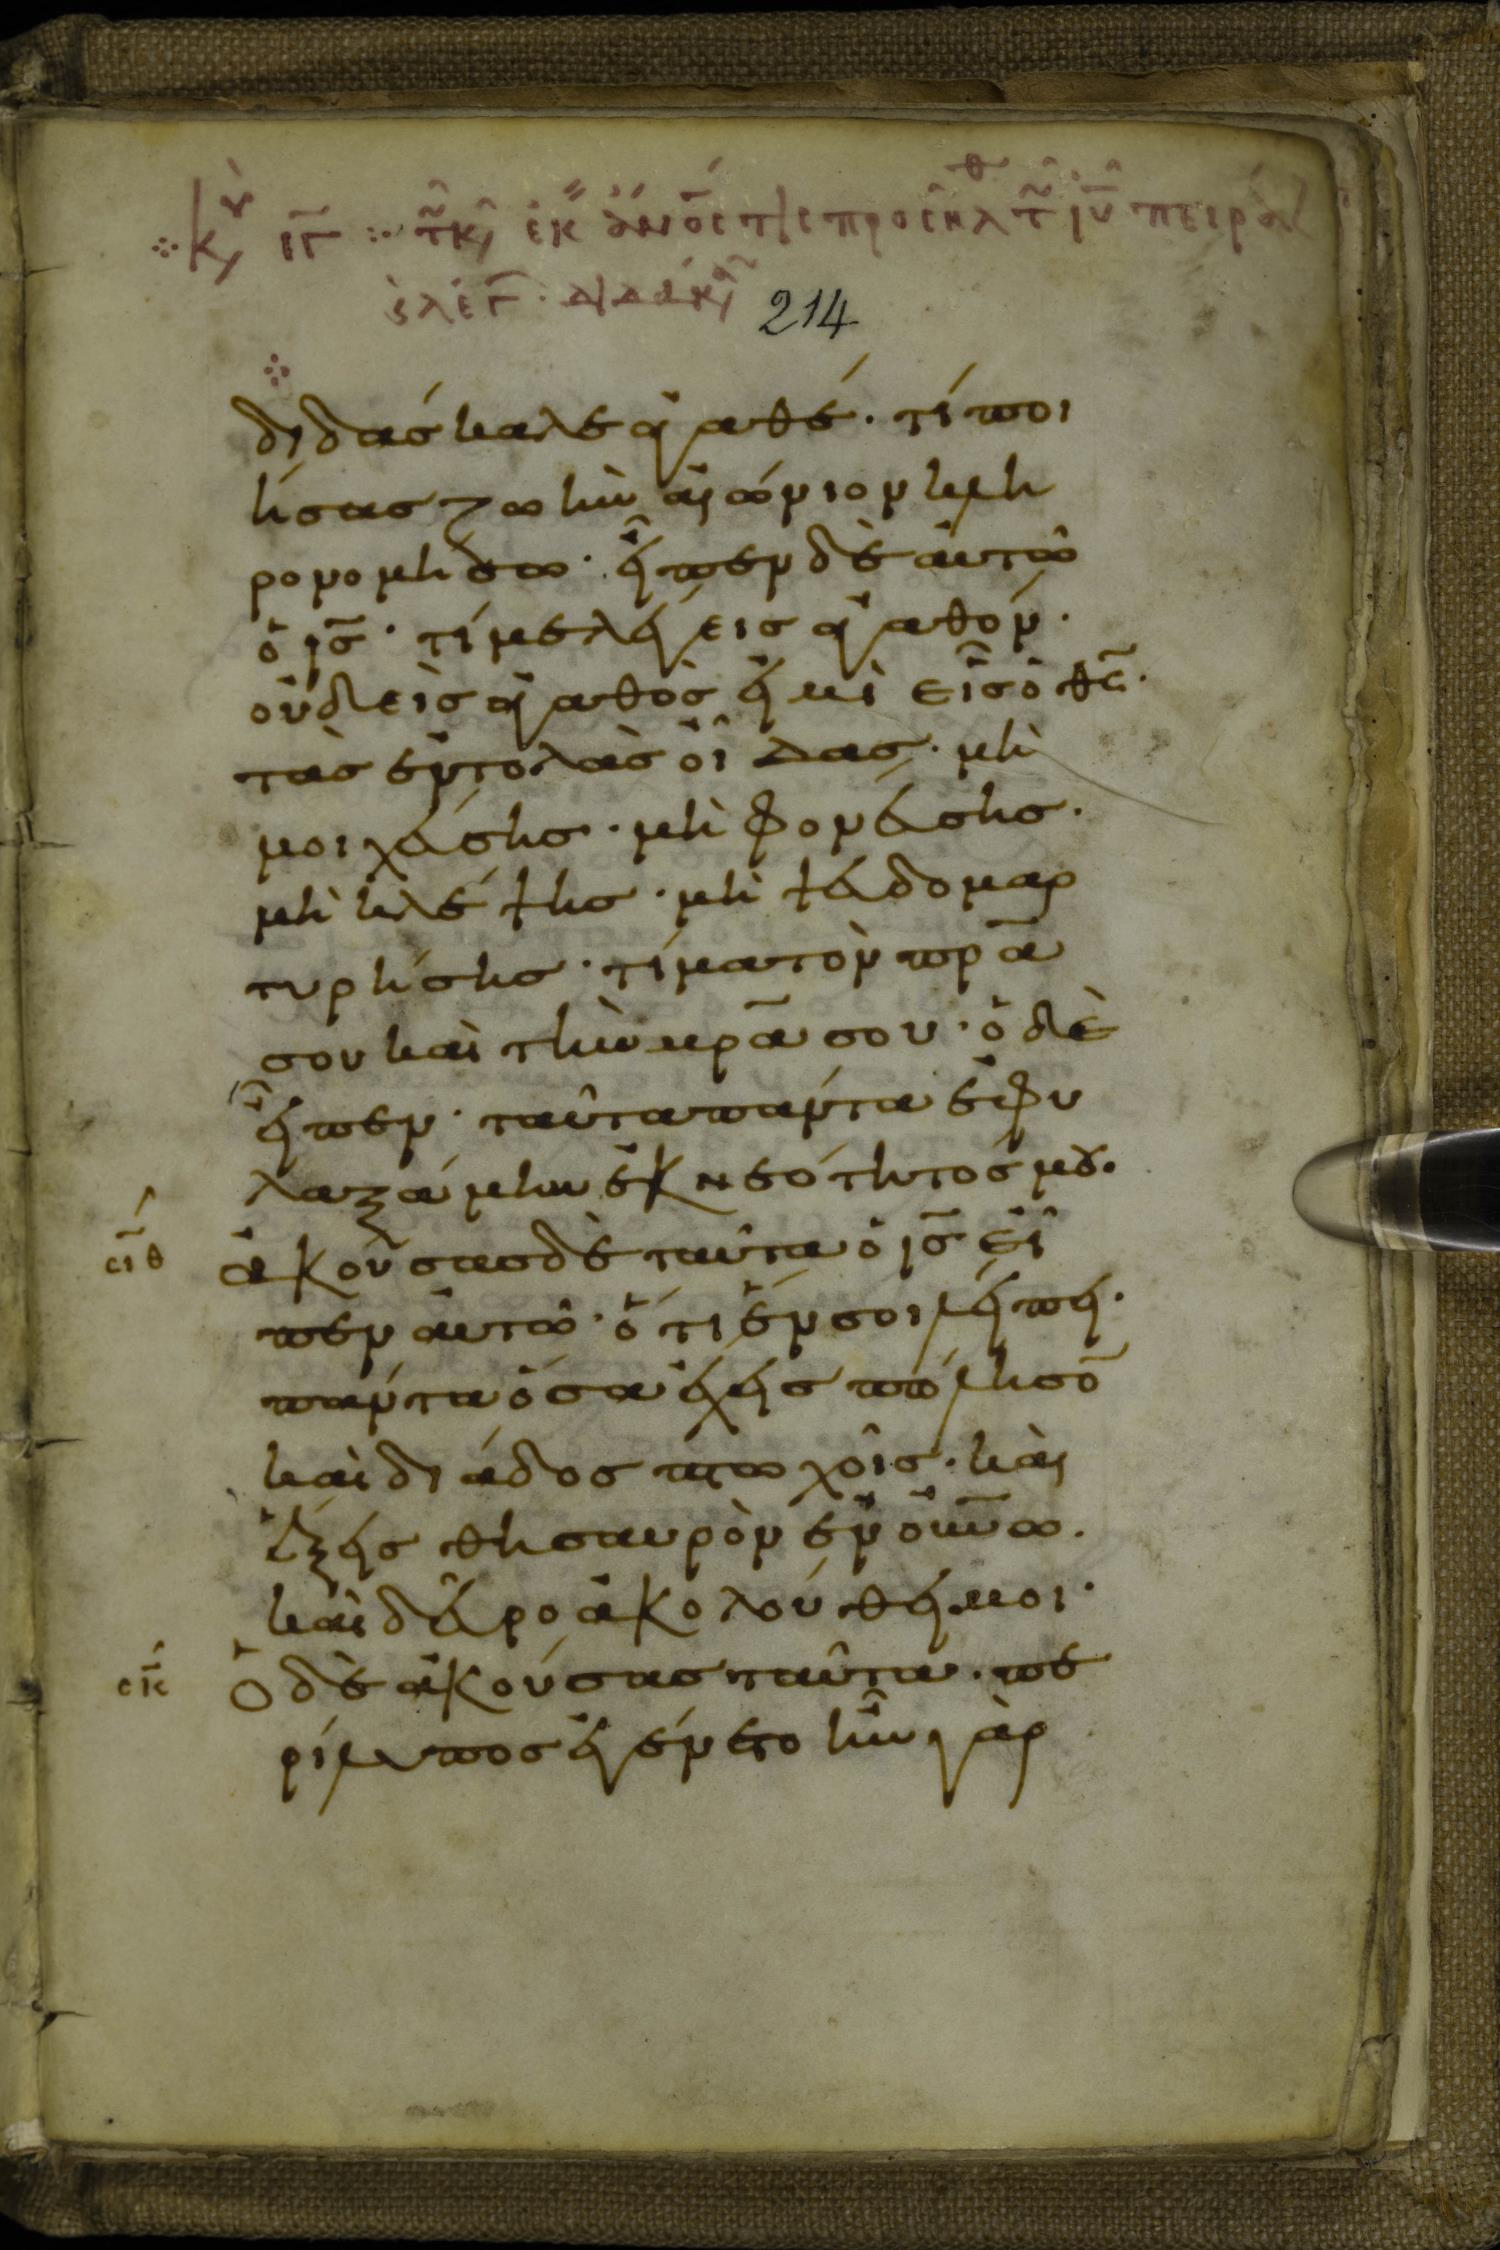 214
διδάσκαλε ἀγαθέ· τί ποι
ήσας ζωὴν αἰώνιον κλη
ρονομήσω· εἶπεν δὲ αὐτῶ
ὁ ις̅· τί με λέγεις ἀγαθόν·
οὐδεὶς ἀγαθὸς εἰ μὴ εἷς ὁ θς̅·
τὰς ἐντολὰς οἶδας· μὴ
μοιχεύσης· μὴ φονεύσης·
μὴ κλέψης· μὴ ψευδομαρ
τυρήσης· τίμα τὸν πρ̅α
σου καὶ τὴν μρ̅α σου· ὁ δὲ
εἶπεν· ταῦτα πάντα ἐφυ
λαξάμην ἐκ νεότητός μου·
σιθ ἀκούσας δὲ ταῦτα ὁ ις̅ εἶ
πεν αὐτῶ· ὅτι ἕν σοι λείπει·
πάντα ὅσα ἔχεις πώλησο̅
καὶ διάδος πτωχοῖς· καὶ
ἕξεις θησαυρὸν ἐν οὐνω̅·
καὶ δεῦρο ἀκολούθει μοι·
σκ Ὁ δὲ ἀκούσας ταῦτα· πε
ρίλυπος ἐγένετο ἦν γὰρ